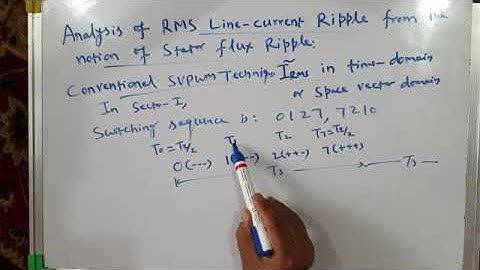 Analysis of RMS Line-current Ripple from the
notion of Stator flux Ripple:
Conventional SVPWM Technique ĨRMS in time-domain
or space vector domain
In Sector-I,
Switching sequence is: 0127, 7210
T0=Tz/2 T1 T2 T7=Tz/2
0(---) 1 -) 2(++-) 7(+++)
Ts Ts